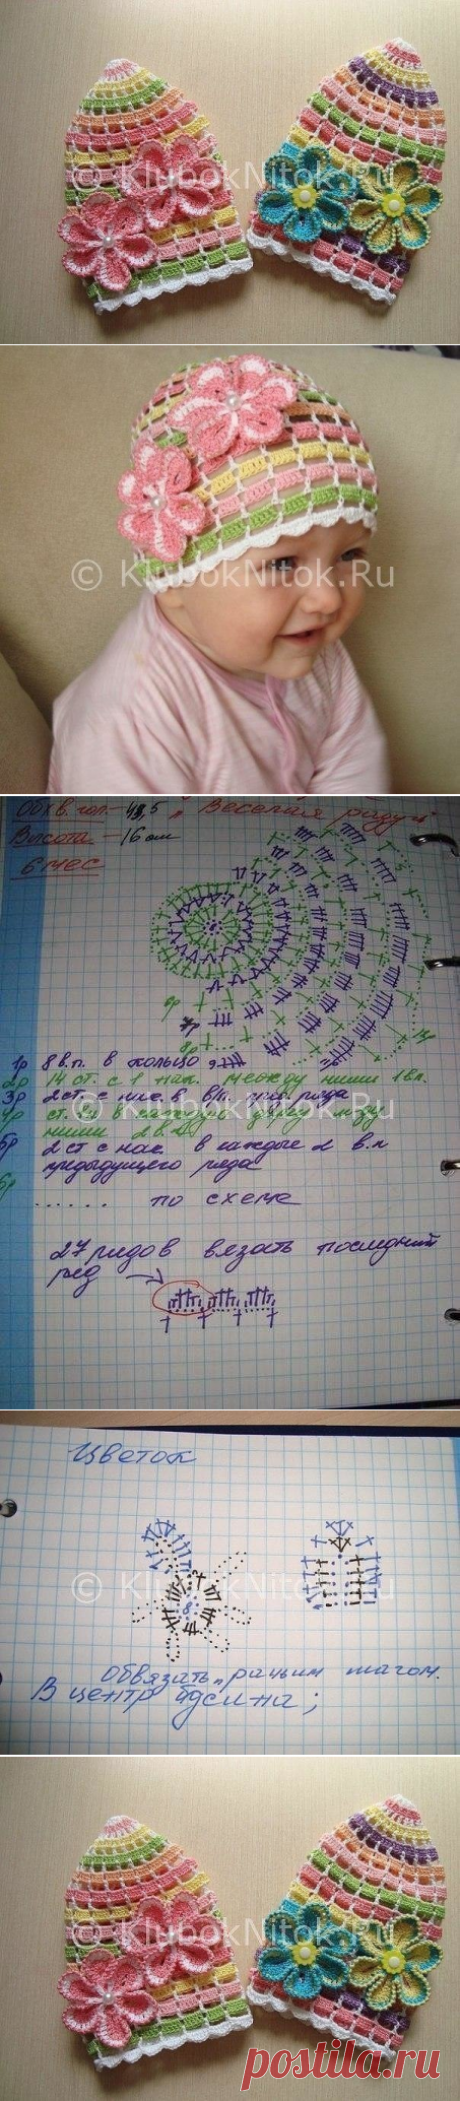 © KlubokNitok.Ru
© KlubokNitok.Ru
Обхв. гол. - 43,5 „Веселая радуга"
Высота - 16 см
6 мес
6р
7р
8р
1р 8 в.п. в кольцо
2р 14 ст. с 1 нак. между ними 1 вп.
3р 2 ст. с нак. в в/п. пред. ряда
4р ст. б/н в каждую между
ними 2 в.п
5р 2 ст с нак. в каждые 2 в.п
предыдущего ряда
6р ...... по схеме
27 рядов вязать последний
ряд
Цветок
© KlubokNitok.Ru
8
Обвязать „рачьим шагом.
В центр бусина;
© KlubokNitok.Ru
postila.ru